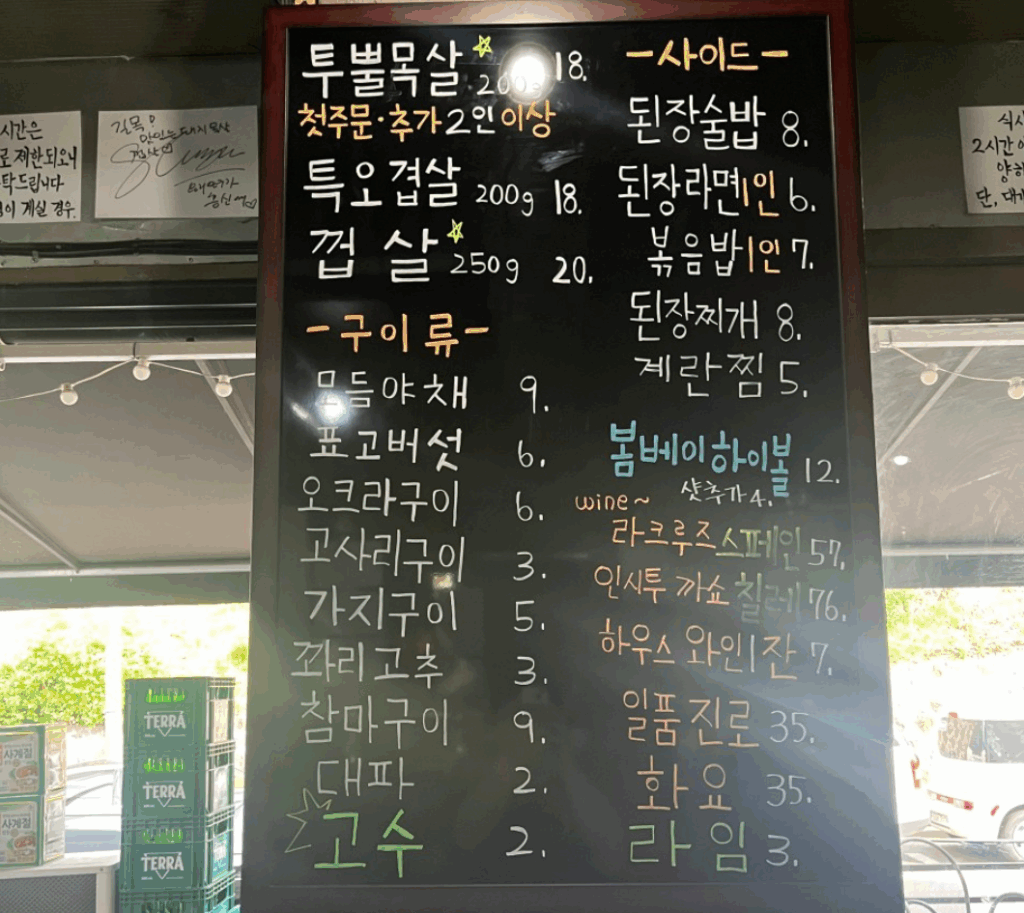 투뿔목살 200g 18.
첫주문·추가 2인 이상
특오겹살 200g 18.
껍살 250g 20.
-구이류-
모듬야채 9.
표고버섯 6.
오크라구이 6.
고사리구이 3.
가지구이 5.
꽈리고추 3.
참마구이 9.
대파 2.
고수 2.
-사이드-
된장술밥 8.
된장라면1인 6.
볶음밥1인 7.
된장찌개 8.
계란찜 5.
봄베이하이볼 12.
샷추가 4.
wine~
라크루즈 스페인 57.
인시투 까쇼 칠레 76.
하우스 와인 1잔 7.
일품진로 35.
화요 35.
라임 3.
시간은
로 제한되오니
탁드립니다
이 계실 경우.
식사
2시간
단, 대
TERRA
TERRA
TERRA
사계절
사계절